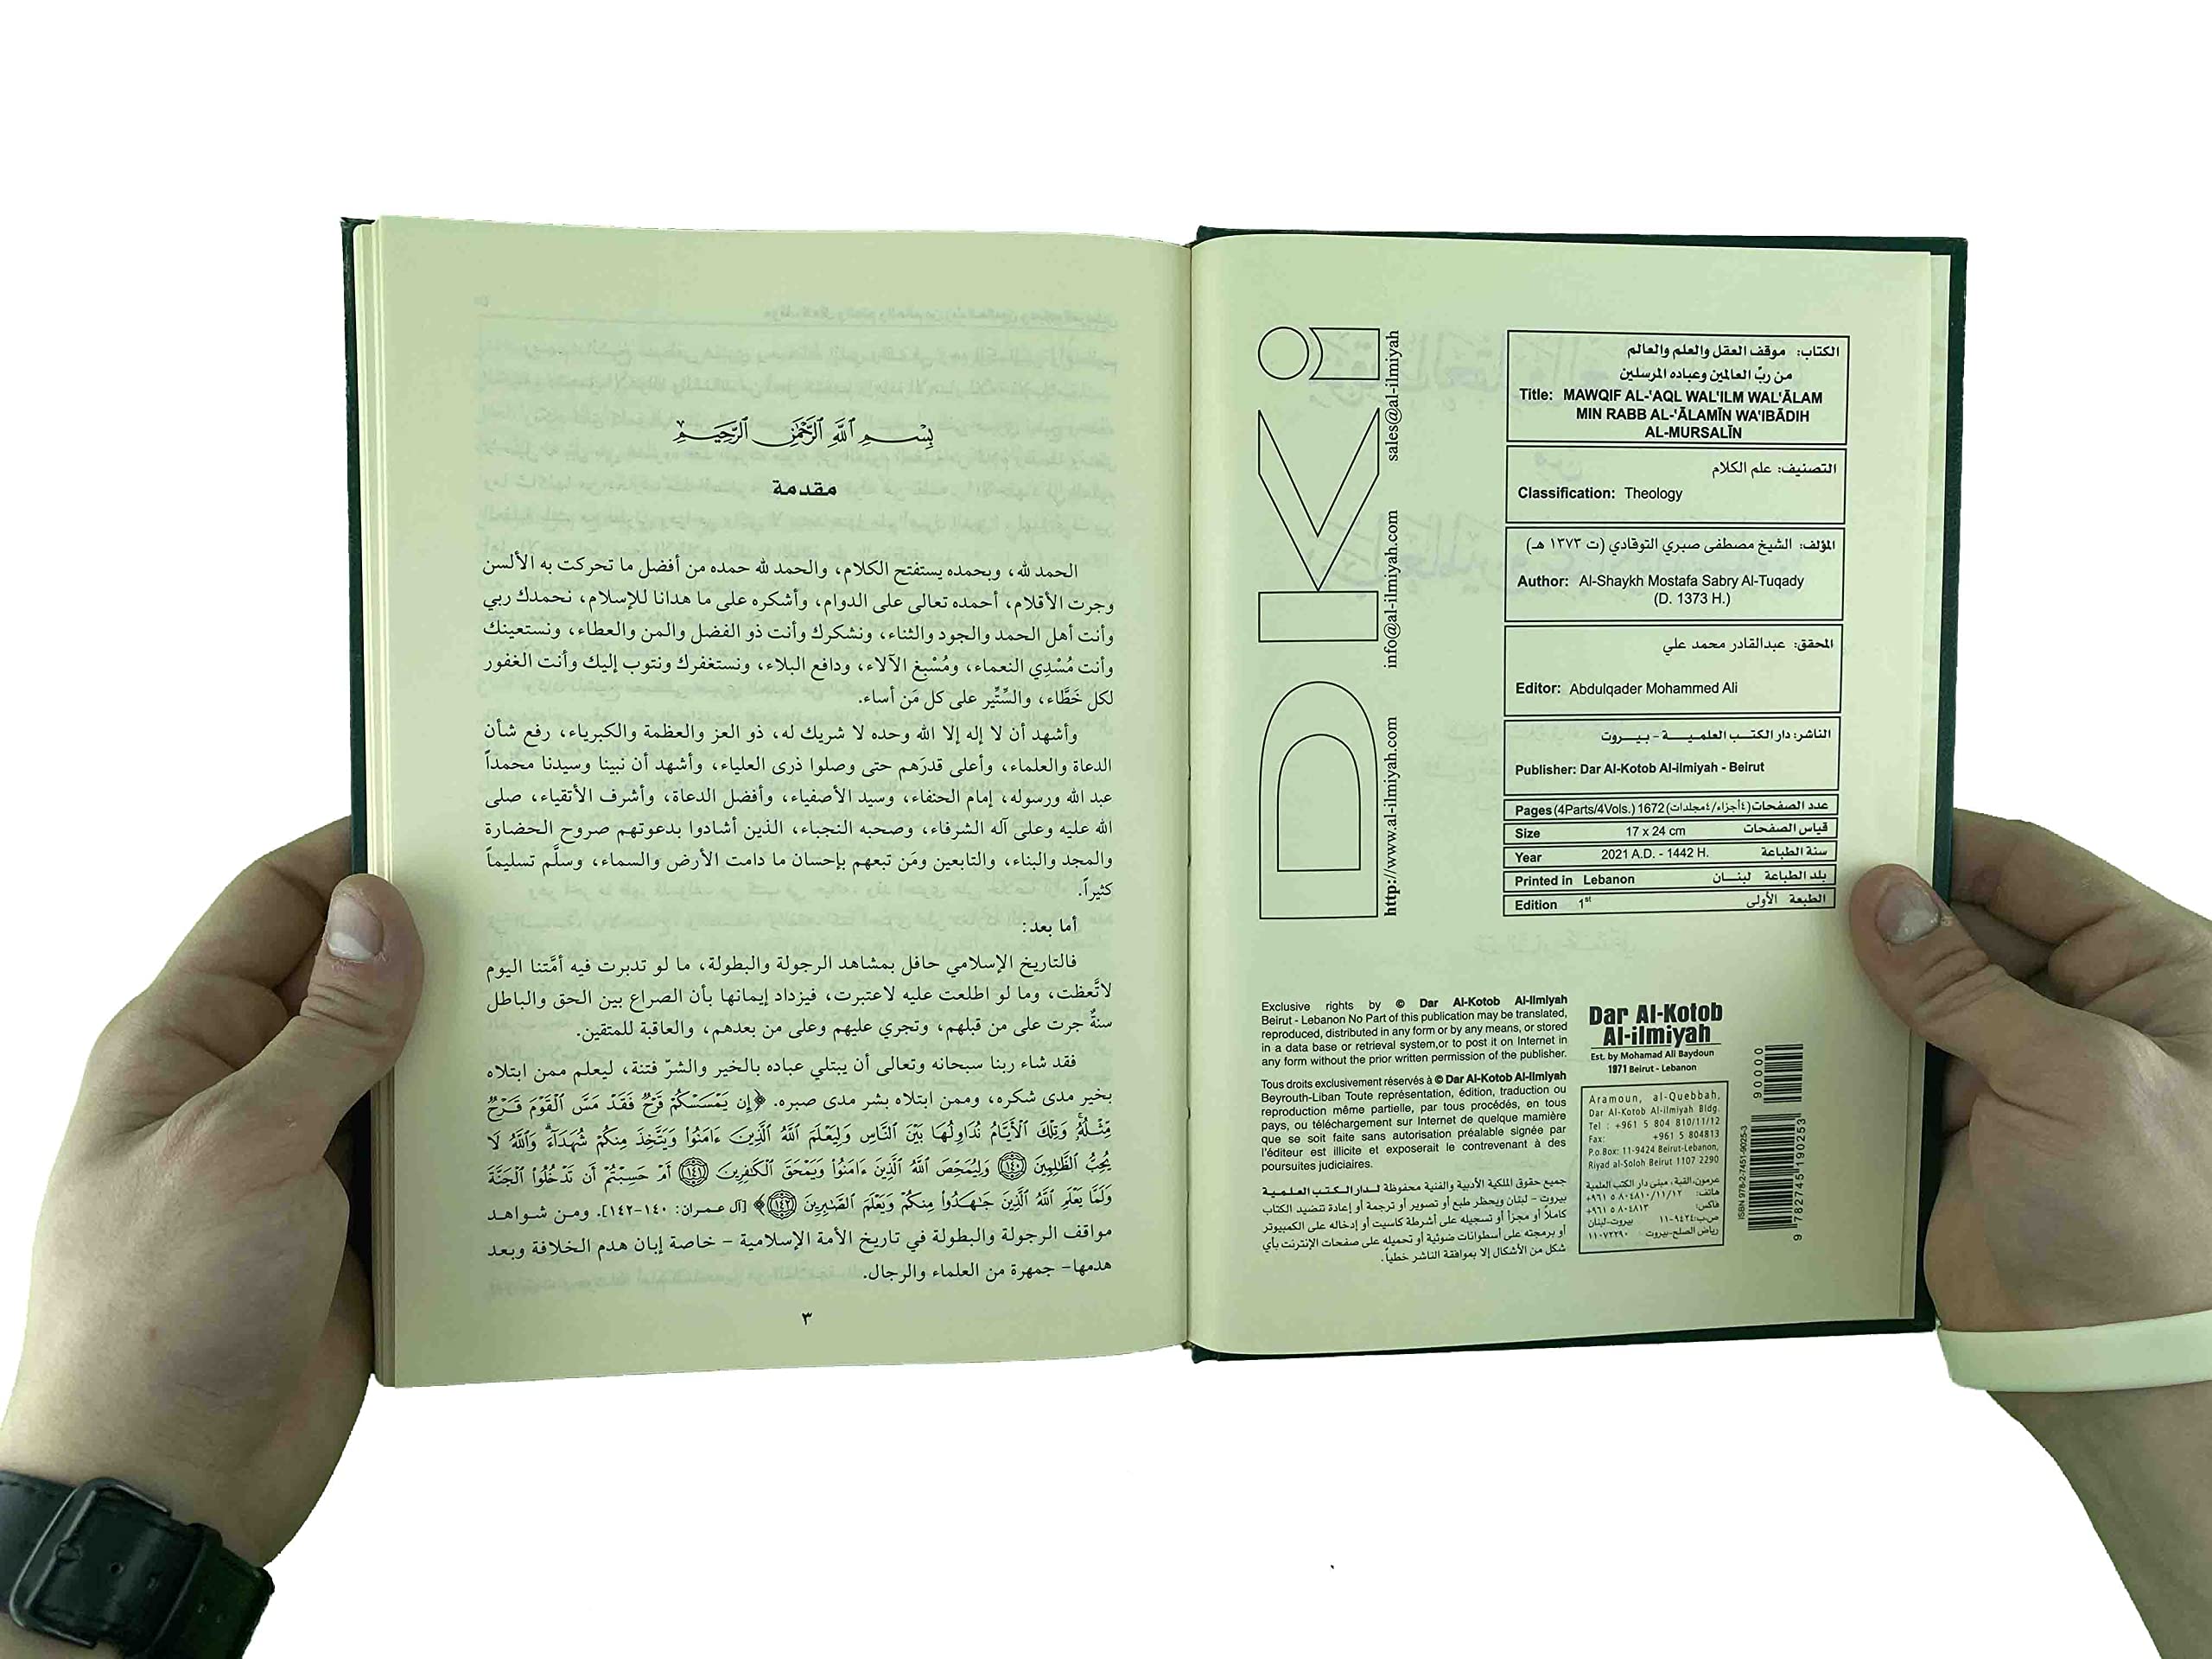 الكتاب: موقف العقل والعلم والعالم
من ربّ العالمين وعباده المرسلين
Title: MAWQIF AL-'AQL WAL'ILM WAL'ĀLAM
MIN RABB AL-'ĀLAMĪN WA'IBĀDIH
AL-MURSALĪN
التصنيف: علم الكلام
Classification: Theology
المؤلف: الشيخ مصطفى صبري التوقادي (ت ١٣٧٣ هـ)
Author: Al-Shaykh Mostafa Sabry Al-Tuqady
(D. 1373 H.)
المحقق: عبدالقادر محمد علي
Editor: Abdulqader Mohammed Ali
الناشر: دار الكتب العلمية - بيروت
Publisher: Dar Al-Kotob Al-ilmiyah - Beirut
Pages (4Parts/4Vols.) 1672 (٤أجزاء/٤مجلدات) عدد الصفحات
Size 17 x 24 cm قياس الصفحات
Year 2021 A.D. - 1442 H. سنة الطباعة
Printed in Lebanon بلد الطباعة لبنان
Edition 1st الطبعة الأولى
DKi
http://www.al-ilmiyah.com info@al-ilmiyah.com sales@al-ilmiyah
Dar Al-Kotob
Al-ilmiyah
Est. by Mohamad Ali Baydoun
1971 Beirut - Lebanon
Aramoun, al-Quebbah,
Dar Al-Kotob Al-ilmiyah Bldg.
Tel : +961 5 804 810/11/12
Fax: +961 5 804813
P.o.Box: 11-9424 Beirut-Lebanon,
Riyad al-Soloh Beirut 1107 2290
عرمون، القبة، مبنى دار الكتب العلمية
هاتف: +٩٦١ ٥ ٨٠٤٨١٠/١١/١٢
فاكس: +٩٦١ ٥ ٨٠٤٨١٣
ص.ب: ٩٤٢٤-١١ بيروت-لبنان
رياض الصلح-بيروت ١١٠٧٢٢٩٠
ISBN 978-2-7451-9025-3
90000
9 782745 190253
Exclusive rights by © Dar Al-Kotob Al-Ilmiyah
Beirut - Lebanon No Part of this publication may be translated,
reproduced, distributed in any form or by any means, or stored
in a data base or retrieval system,or to post it on Internet in
any form without the prior written permission of the publisher.
Tous droits exclusivement réservés à © Dar Al-Kotob Al-Ilmiyah
Beyrouth-Liban Toute représentation, édition, traduction ou
reproduction même partielle, par tous procédés, en tous
pays, ou téléchargement sur Internet de quelque manière
que se soit faite sans autorisation préalable signée par
l'éditeur est illicite et exposerait le contrevenant à des
poursuites judiciaires.
جميع حقوق الملكية الأدبية والفنية محفوظة لدار الكتب العلمية
بيروت - لبنان ويحظر طبع أو تصوير أو ترجمة أو إعادة تنضيد الكتاب
كاملاً أو مجزأ أو تسجيله على أشرطة كاسيت أو إدخاله على الكمبيوتر
أو برمجته على أسطوانات ضوئية أو تحميله على صفحات الإنترنت بأي
شكل من الأشكال إلا بموافقة الناشر خطياً.
بِسْمِ ٱللَّهِ ٱلرَّحْمَٰنِ ٱلرَّحِيمِ
مقدمة
الحمد لله، وبحمده يستفتح الكلام، والحمد لله حمده من أفضل ما تحركت به الألسن
وجرت الأقلام، أحمده تعالى على الدوام، وأشكره على ما هدانا للإسلام، نحمدك ربي
وأنت أهل الحمد والجود والثناء، ونشكرك وأنت ذو الفضل والمن والعطاء، ونستعينك
وأنت مُسْدِي النعماء، ومُسْبِغ الآلاء، ودافع البلاء، ونستغفرك ونتوب إليك وأنت الغفور
لكل خَطَّاء، والسِّتِّير على كل مَن أساء.
وأشهد أن لا إله إلا الله وحده لا شريك له، ذو العز والعظمة والكبرياء، رفع شأن
الدعاة والعلماء، وأعلى قدرَهم حتى وصلوا ذرى العلياء، وأشهد أن نبينا وسيدنا محمداً
عبد الله ورسوله، إمام الحنفاء، وسيد الأصفياء، وأفضل الدعاة، وأشرف الأتقياء، صلى
الله عليه وعلى آله الشرفاء، وصحبه النجباء، الذين أشادوا بدعوتهم صروح الحضارة
والمجد والبناء، والتابعين ومَن تبعهم بإحسان ما دامت الأرض والسماء، وسلَّم تسليماً
كثيراً.
أما بعد:
فالتاريخ الإسلامي حافل بمشاهد الرجولة والبطولة، ما لو تدبرت فيه أمَّتنا اليوم
لاتَّعظت، وما لو اطلعت عليه لاعتبرت، فيزداد إيمانها بأن الصراع بين الحق والباطل
سنةٌ جرت على من قبلهم، وتجري عليهم وعلى من بعدهم، والعاقبة للمتقين.
فقد شاء ربنا سبحانه وتعالى أن يبتلي عباده بالخير والشرّ فتنة، ليعلم ممن ابتلاه
بخير مدى شكره، وممن ابتلاه بشر مدى صبره. ﴿إِن يَمْسَسْكُمْ قَرْحٌ فَقَدْ مَسَّ ٱلْقَوْمَ قَرْحٌ
مِّثْلُهُۥ وَتِلْكَ ٱلْأَيَّامُ نُدَاوِلُهَا بَيْنَ ٱلنَّاسِ وَلِيَعْلَمَ ٱللَّهُ ٱلَّذِينَ ءَامَنُوا۟ وَيَتَّخِذَ مِنكُمْ شُهَدَآءَ وَٱللَّهُ لَا
يُحِبُّ ٱلظَّٰلِمِينَ ١٤٠ وَلِيُمَحِّصَ ٱللَّهُ ٱلَّذِينَ ءَامَنُوا۟ وَيَمْحَقَ ٱلْكَٰفِرِينَ ١٤١ أَمْ حَسِبْتُمْ أَن تَدْخُلُوا۟ ٱلْجَنَّةَ
وَلَمَّا يَعْلَمِ ٱللَّهُ ٱلَّذِينَ جَٰهَدُوا۟ مِنكُمْ وَيَعْلَمَ ٱلصَّٰبِرِينَ ١٤٢﴾ [آل عمران: ١٤٠-١٤٢]. ومن شواهد
مواقف الرجولة والبطولة في تاريخ الأمة الإسلامية - خاصة إبان هدم الخلافة وبعد
هدمها- جمهرة من العلماء والرجال.
٣